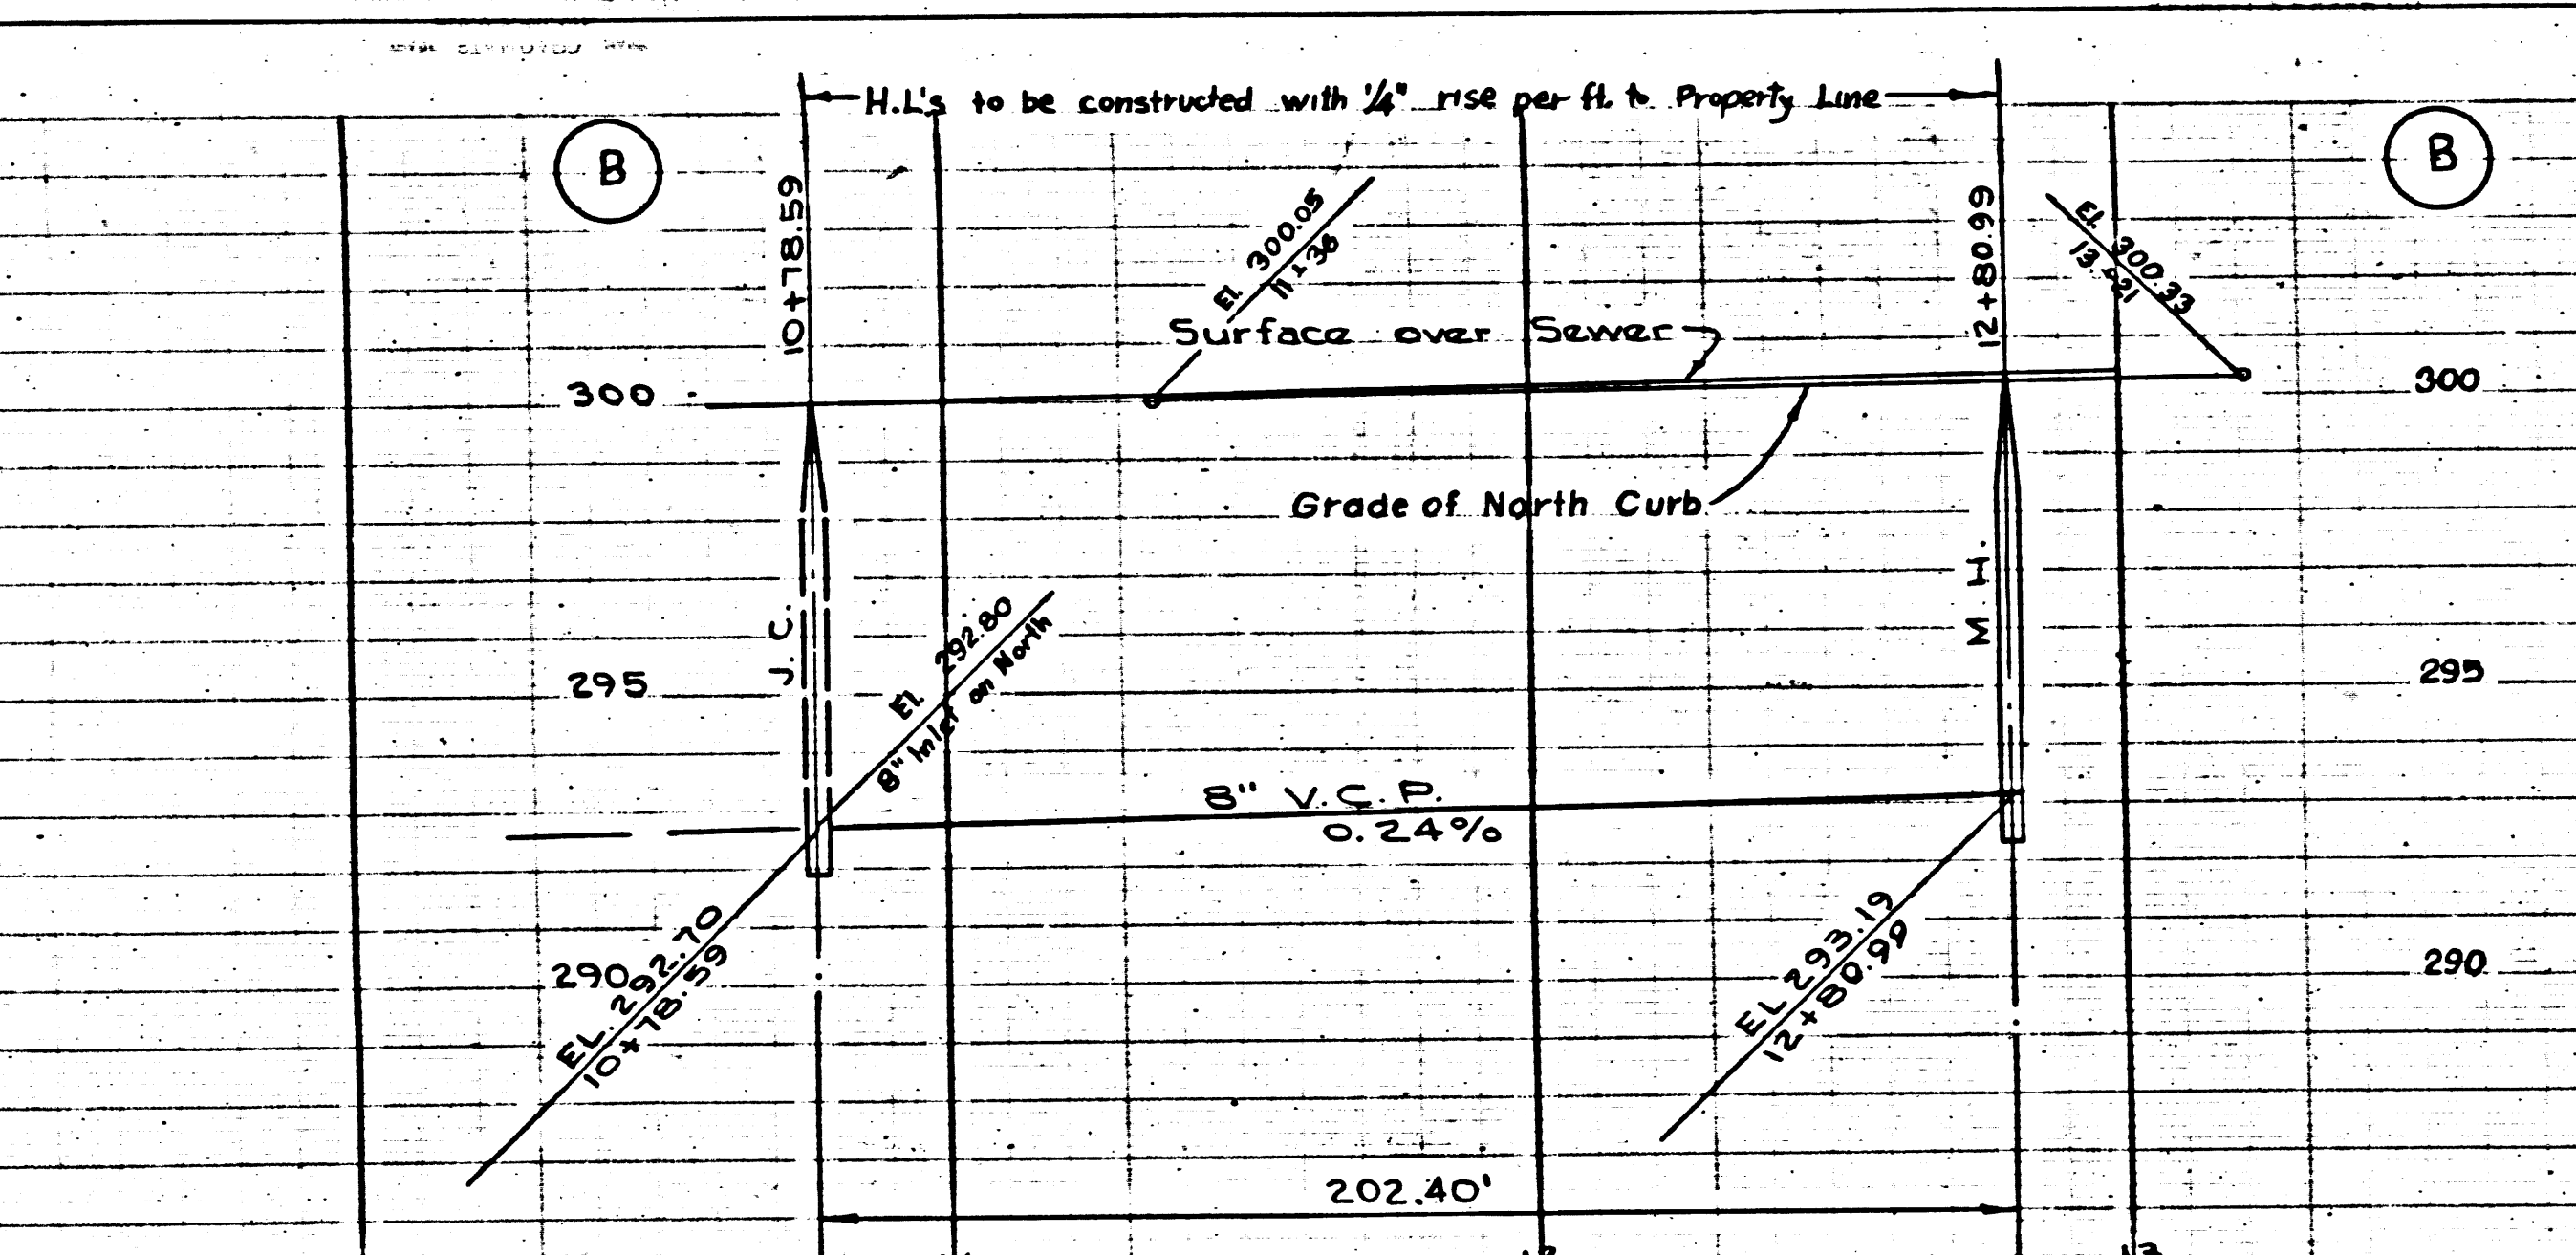 H.L's to be constructed with 1/4" rise per ft. to Property Line
B
B
10+78.59
El. 300.05
11+36
12+80.99
El. 300.33
13+21
Surface over Sewer
300
300
Grade of North Curb
J. C.
M. H.
El. 292.80
8" Inlet on North
295
295
8" V.C.P.
0.24%
290
290
EL. 292.70
10+78.59
EL 293.19
12+80.99
202.40'